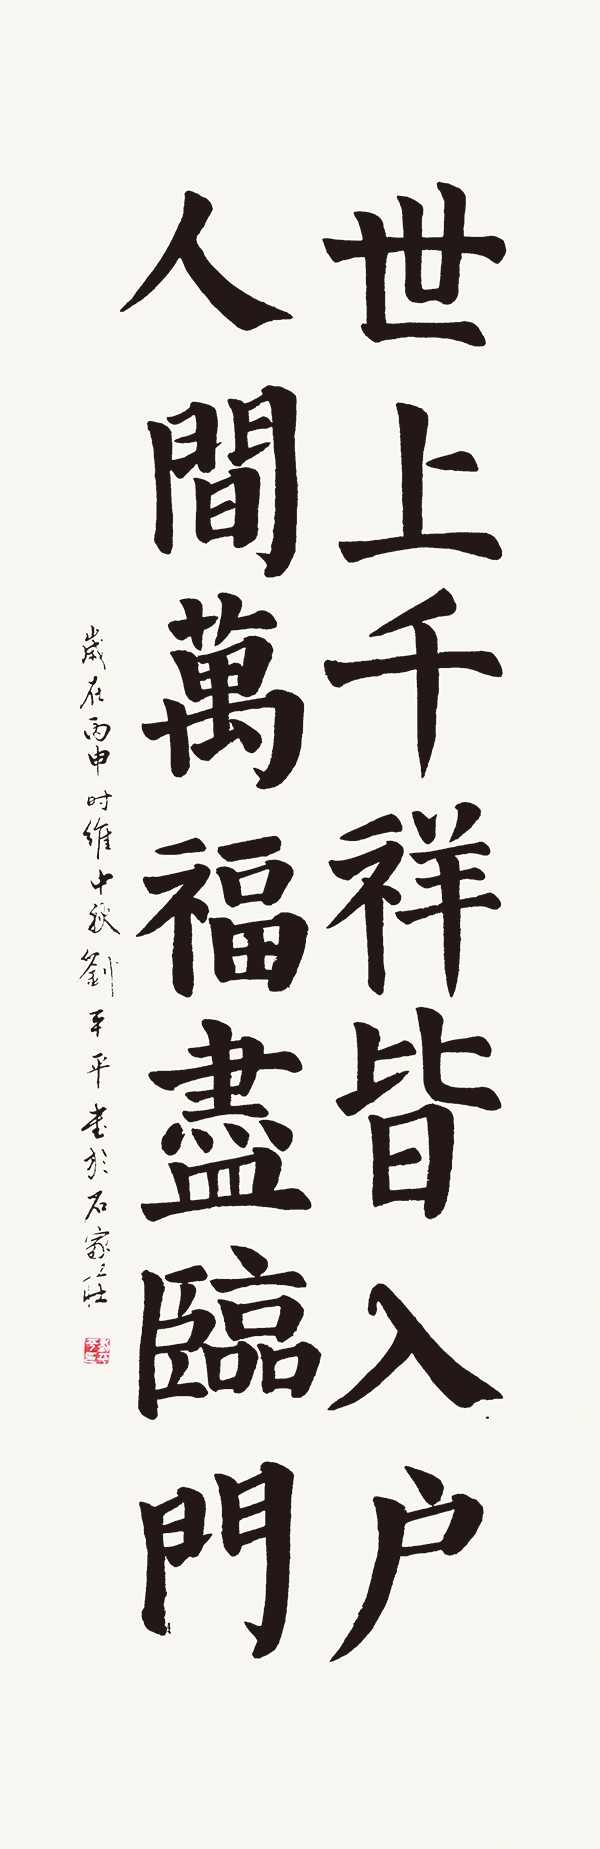 世上千祥皆入户
人間萬福盡臨門
歲在丙申时維中秋劉平平书於石家莊